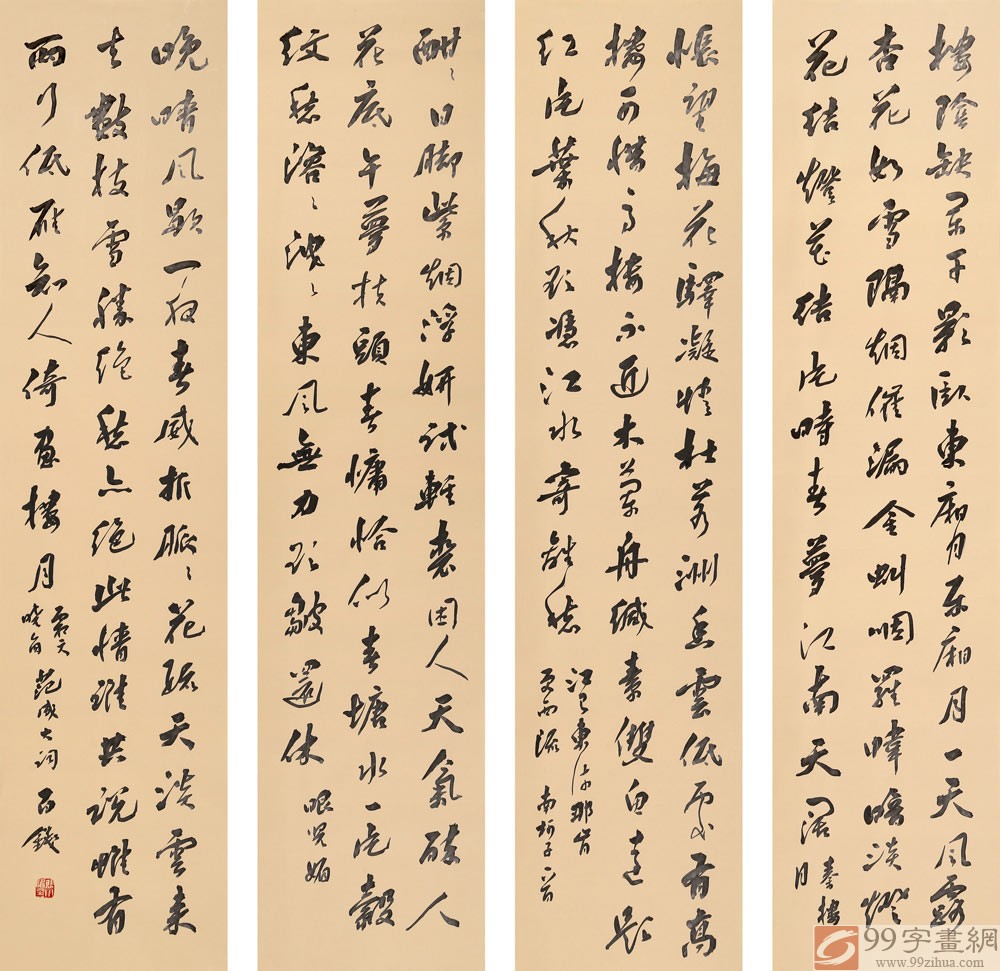 樓陰缺闌干影臥東廂月東廂月一天風露
杏花如雪隔烟催漏金虬咽羅幃暗淡燈
花結燈花結片時春夢江南天闊
秦樓
月
悵望梅花驛凝情杜若洲香雲低處有高
樓可惜高樓不近木蘭舟緘素雙魚遠題
紅片葉秋欲憑江水寄離愁
江已東流那肯
更西流 南柯子一首
酣酣日脚紫烟浮妍試輕裘困人天氣醉人
花底午夢扶頭春慵恰似春塘水一片縠
紋愁溶溶洩洩東風無力欲皺還休
眼兒媚
晚晴風歇一夜春威折脈脈花疏天淡雲來
去數枝雪勝絕愁亦絕此情誰共說惟有
兩行低雁知人倚畫樓月
霜天
曉角 范成大詞
99字畫網
www.99zihua.com